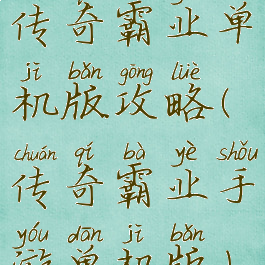 传奇霸业单
jī bǎn gōng lüè
机版攻略(
chuán qí bà yè shǒu
传奇霸业手
yóu dān jī bǎn
游单机版)